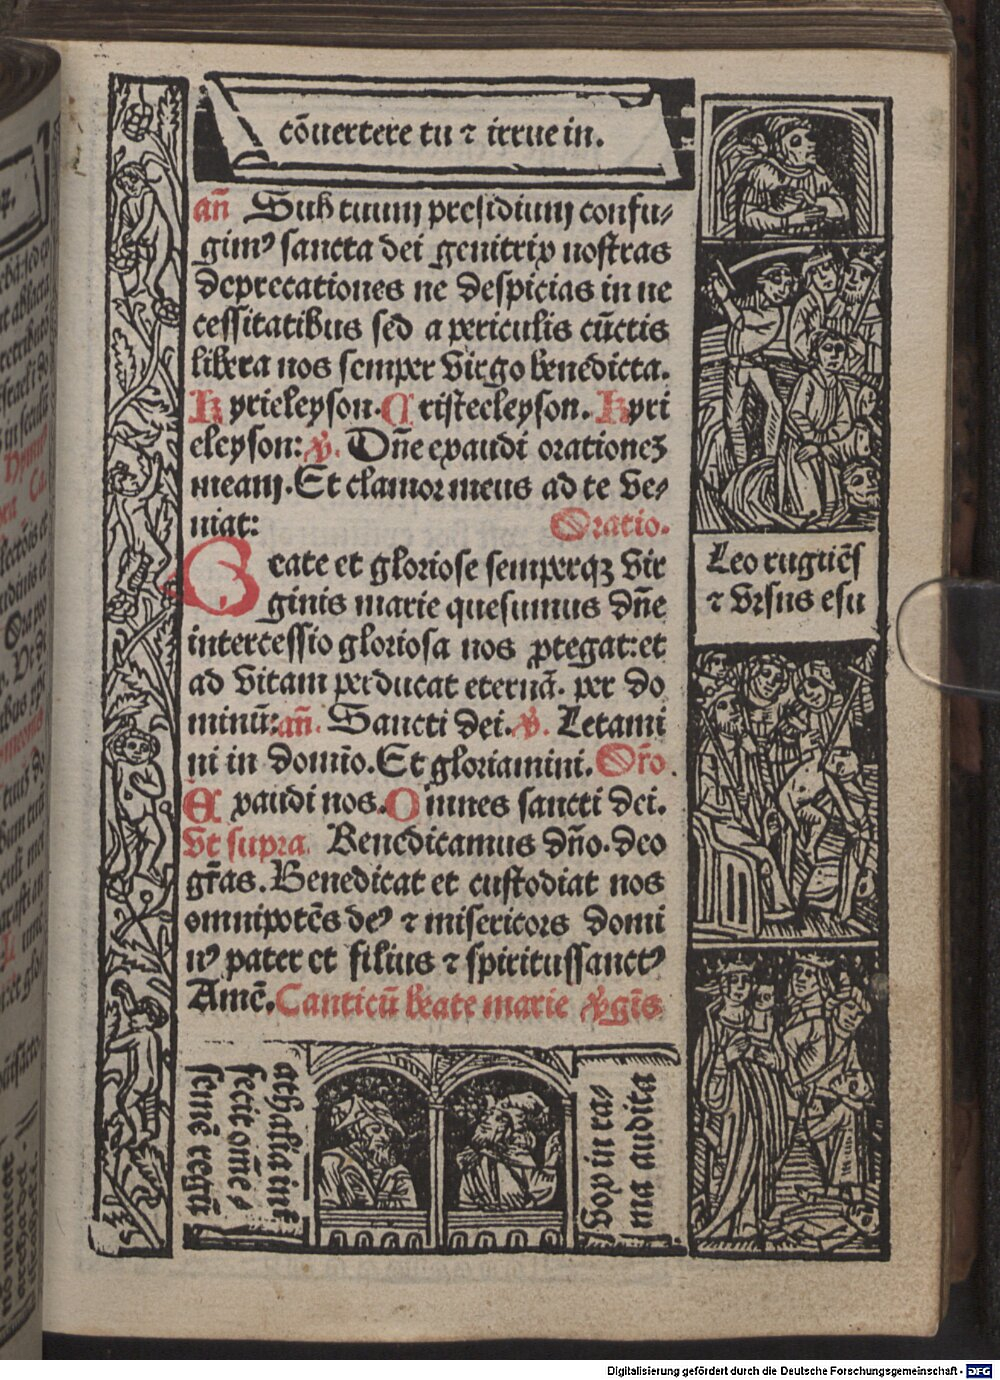 cōuertere tu ⁊ irrue in.
añ Sub tuum presidium confu⸗
gimꝰ sancta dei genitrix nostras
deprecationes ne despicias in ne
cessitatibus sed a periculis cūctis
libera nos semper virgo benedicta.
Kyrieleyson. Cristeeleyson. Kyri
eleyson: ℣. Dñe exaudi orationeȝ
meam. Et clamor meus ad te ve⸗
niat: Oratio.
Beate et gloriose semperqȝ vir
ginis marie quesumus dñe
intercessio gloriosa nos ꝓtegat: et
ad vitam perducat eternā. per do
minū: añ. Sancti dei. ℣. Letami
ni in domīo. Et gloriamini. Or̄o.
Exaudi nos. Omnes sancti dei.
vt supra. Benedicamus dño. deo
gr̄as. Benedicat et custodiat nos
omnipotēs deꝰ ⁊ misericors domi
nꝰ pater et filius ⁊ spiritussanctꝰ
Amē. Canticū beate marie ꝟgīs
Leo rugiēs
⁊ vrsus esu
athalia int̄
fecit omē⸗
semē regiū
vop in ra⸗
ma audita